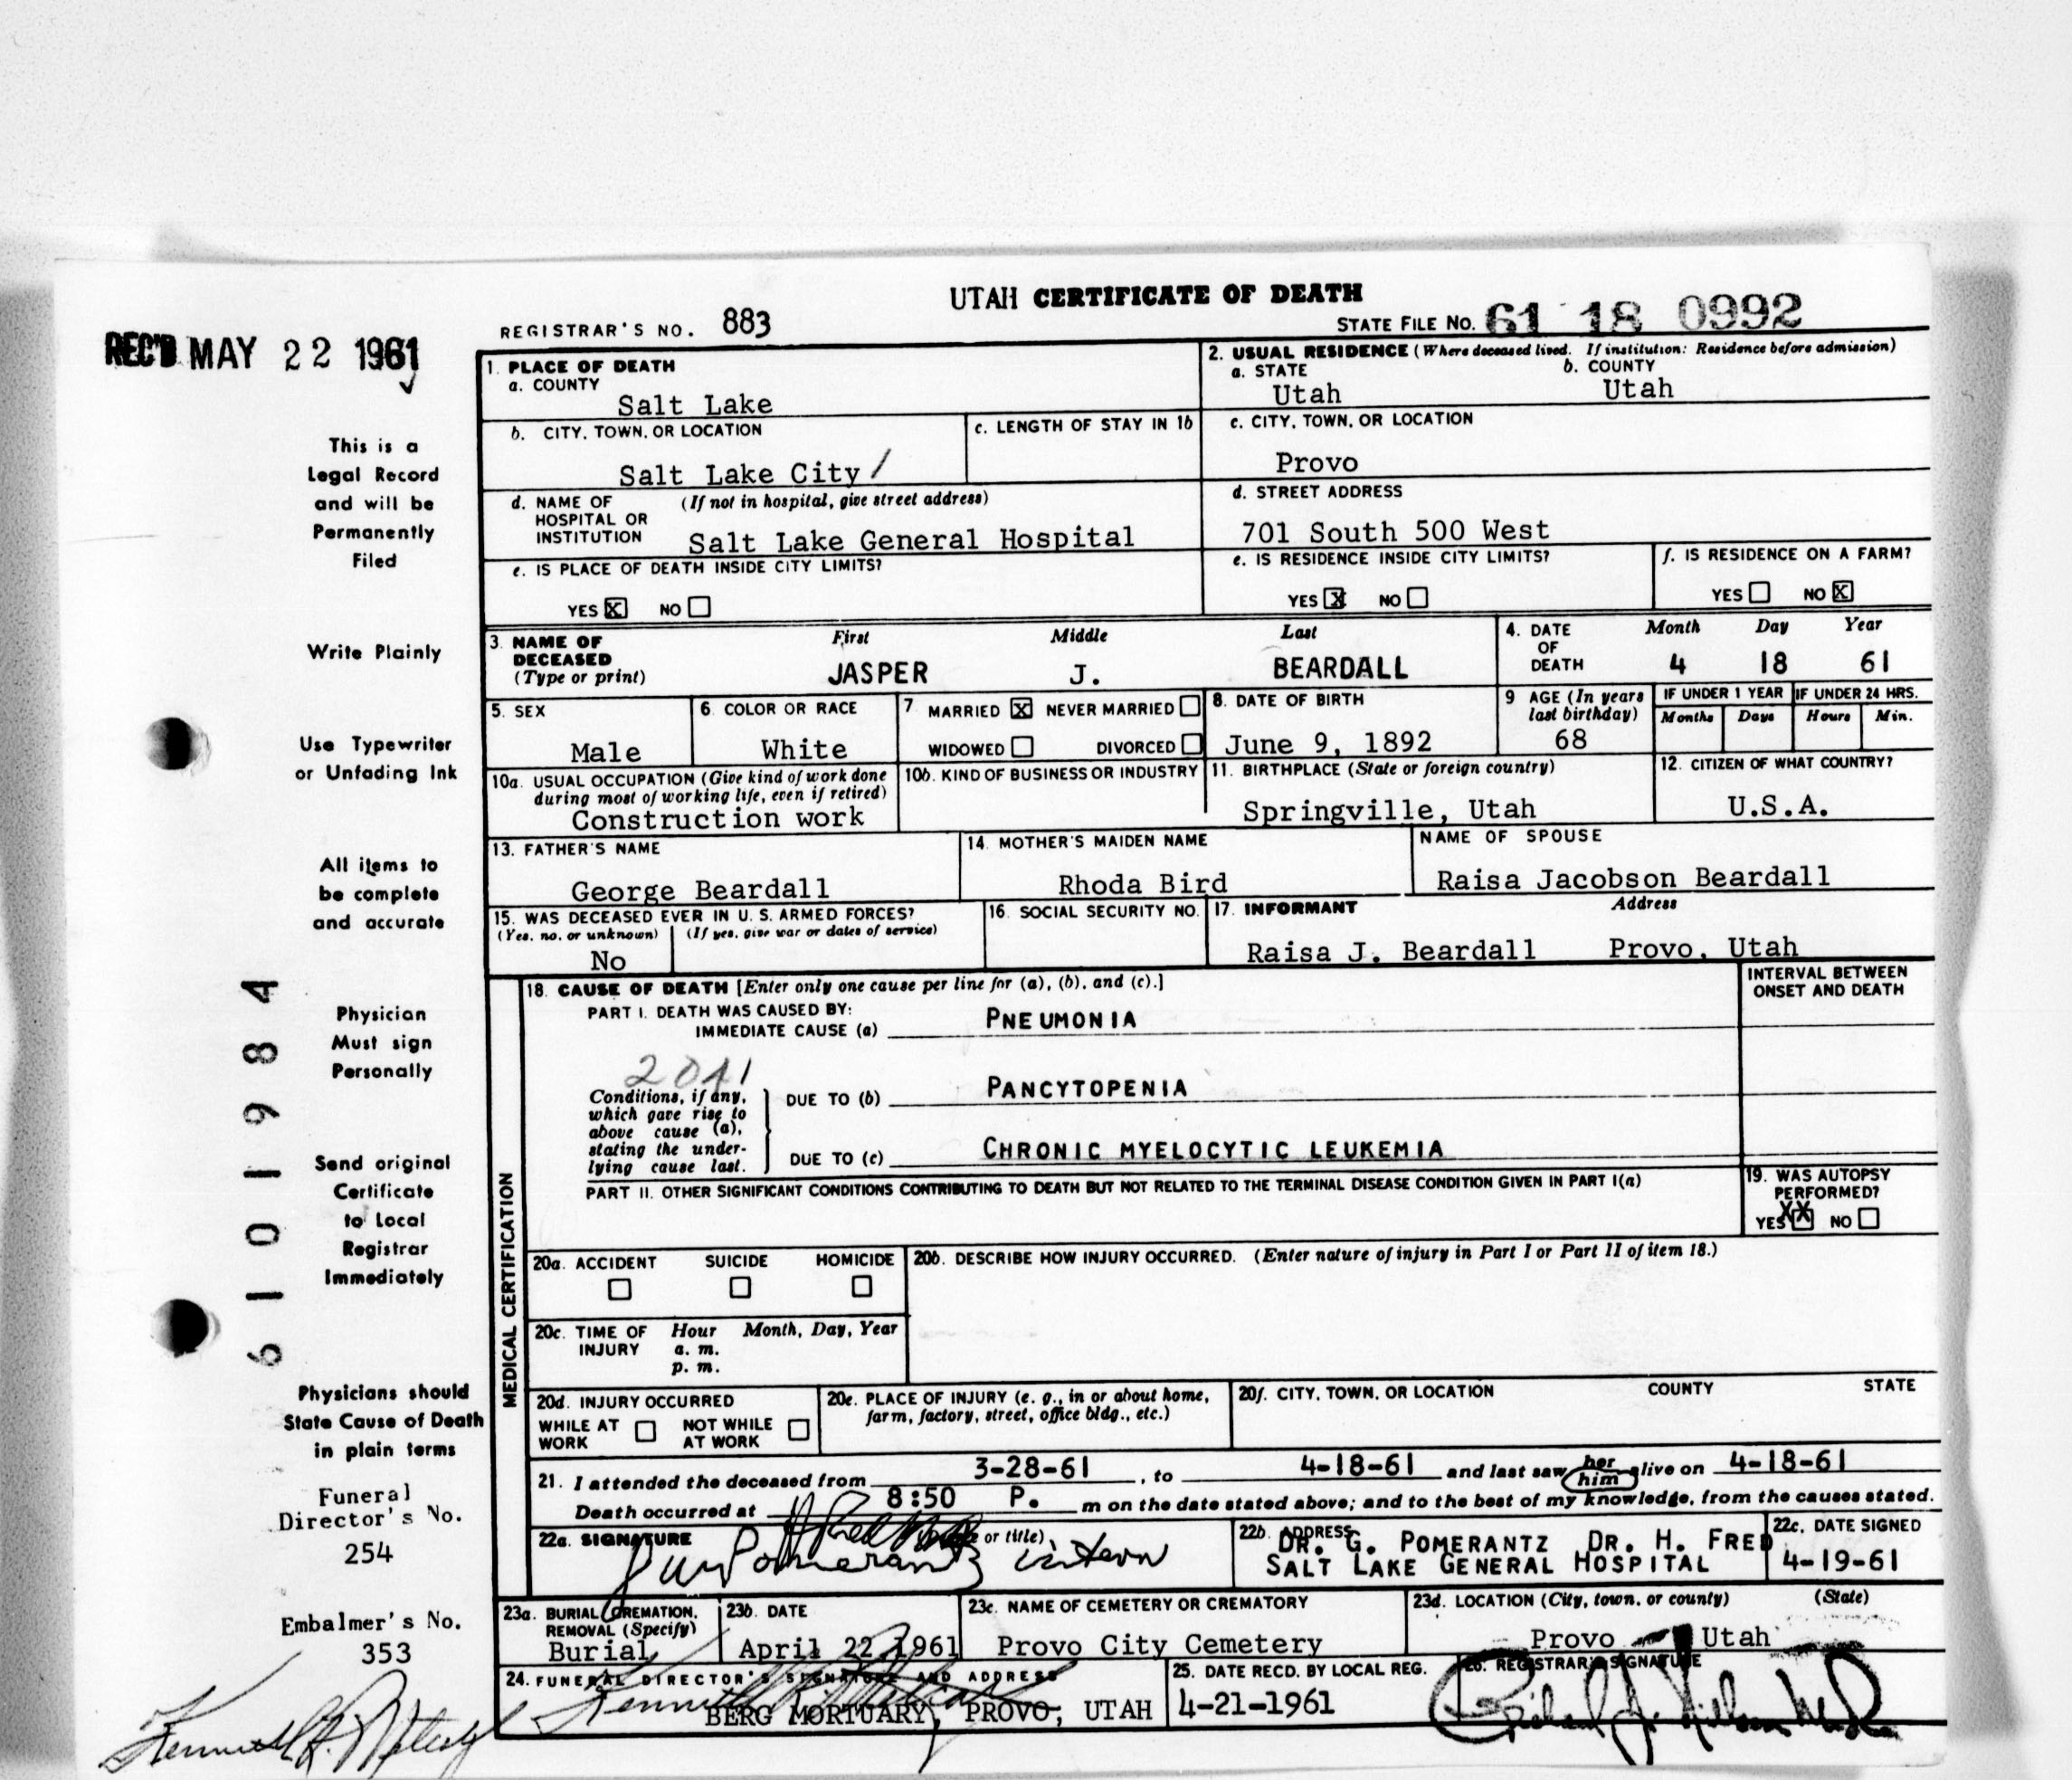 UTAH CERTIFICATE OF DEATH
REGISTRAR'S NO. 883
STATE FILE NO. 61 18 0992
REC'D MAY 22 1961
This is a
Legal Record
and will be
Permanently
Filed
Write Plainly
Use Typewriter
or Unfading Ink
All items to
be complete
and accurate
Physician
Must sign
Personally
Send original
Certificate
to Local
Registrar
Immediately
Physicians should
State Cause of Death
in plain terms
Funeral
Director's No.
254
Embalmer's No.
353
6101984
1. PLACE OF DEATH
a. COUNTY
Salt Lake
b. CITY, TOWN, OR LOCATION
Salt Lake City /
c. LENGTH OF STAY IN 1b
d. NAME OF (If not in hospital, give street address)
HOSPITAL OR
INSTITUTION Salt Lake General Hospital
e. IS PLACE OF DEATH INSIDE CITY LIMITS?
YES X NO
2. USUAL RESIDENCE (Where deceased lived. If institution: Residence before admission)
a. STATE b. COUNTY
Utah Utah
c. CITY, TOWN, OR LOCATION
Provo
d. STREET ADDRESS
701 South 500 West
e. IS RESIDENCE INSIDE CITY LIMITS?
YES X NO
f. IS RESIDENCE ON A FARM?
YES NO X
3. NAME OF First Middle Last
DECEASED
(Type or print) JASPER J. BEARDALL
4. DATE Month Day Year
OF
DEATH 4 18 61
5. SEX
Male
6. COLOR OR RACE
White
7 MARRIED X NEVER MARRIED
WIDOWED DIVORCED
8. DATE OF BIRTH
June 9, 1892
9 AGE (In years
last birthday)
68
IF UNDER 1 YEAR IF UNDER 24 HRS.
Months Days Hours Min.
10a. USUAL OCCUPATION (Give kind of work done
during most of working life, even if retired)
Construction work
10b. KIND OF BUSINESS OR INDUSTRY
11. BIRTHPLACE (State or foreign country)
Springville, Utah
12. CITIZEN OF WHAT COUNTRY?
U.S.A.
13. FATHER'S NAME
George Beardall
14. MOTHER'S MAIDEN NAME
Rhoda Bird
NAME OF SPOUSE
Raisa Jacobson Beardall
15. WAS DECEASED EVER IN U. S. ARMED FORCES?
(Yes, no, or unknown) (If yes, give war or dates of service)
No
16. SOCIAL SECURITY NO.
17. INFORMANT Address
Raisa J. Beardall Provo, Utah
MEDICAL CERTIFICATION
18. CAUSE OF DEATH [Enter only one cause per line for (a), (b), and (c).]
INTERVAL BETWEEN
ONSET AND DEATH
PART I. DEATH WAS CAUSED BY:
IMMEDIATE CAUSE (a) PNEUMONIA
2041
Conditions, if any,
which gave rise to
above cause (a),
stating the under-
lying cause last.
DUE TO (b) PANCYTOPENIA
DUE TO (c) CHRONIC MYELOCYTIC LEUKEMIA
PART II. OTHER SIGNIFICANT CONDITIONS CONTRIBUTING TO DEATH BUT NOT RELATED TO THE TERMINAL DISEASE CONDITION GIVEN IN PART I(a)
19. WAS AUTOPSY
PERFORMED?
YES XX NO
20a. ACCIDENT SUICIDE HOMICIDE
20b. DESCRIBE HOW INJURY OCCURRED. (Enter nature of injury in Part I or Part II of item 18.)
20c. TIME OF Hour Month, Day, Year
INJURY a. m.
p. m.
20d. INJURY OCCURRED
WHILE AT NOT WHILE
WORK AT WORK
20e. PLACE OF INJURY (e. g., in or about home,
farm, factory, street, office bldg., etc.)
20f. CITY, TOWN, OR LOCATION COUNTY STATE
21. I attended the deceased from 3-28-61, to 4-18-61 and last saw her him alive on 4-18-61
Death occurred at 8:50 P. m on the date stated above; and to the best of my knowledge, from the causes stated.
22a. SIGNATURE or title)
Pomerantz intern
22b. ADDRESS
DR. G. POMERANTZ DR. H. FRED
SALT LAKE GENERAL HOSPITAL
22c. DATE SIGNED
4-19-61
23a. BURIAL, CREMATION,
REMOVAL (Specify)
Burial
23b. DATE
April 22, 1961
23c. NAME OF CEMETERY OR CREMATORY
Provo City Cemetery
23d. LOCATION (City, town, or county) (State)
Provo Utah
24. FUNERAL DIRECTOR'S SIGNATURE AND ADDRESS
BERG MORTUARY, PROVO, UTAH
25. DATE RECD. BY LOCAL REG.
4-21-1961
26. REGISTRAR'S SIGNATURE